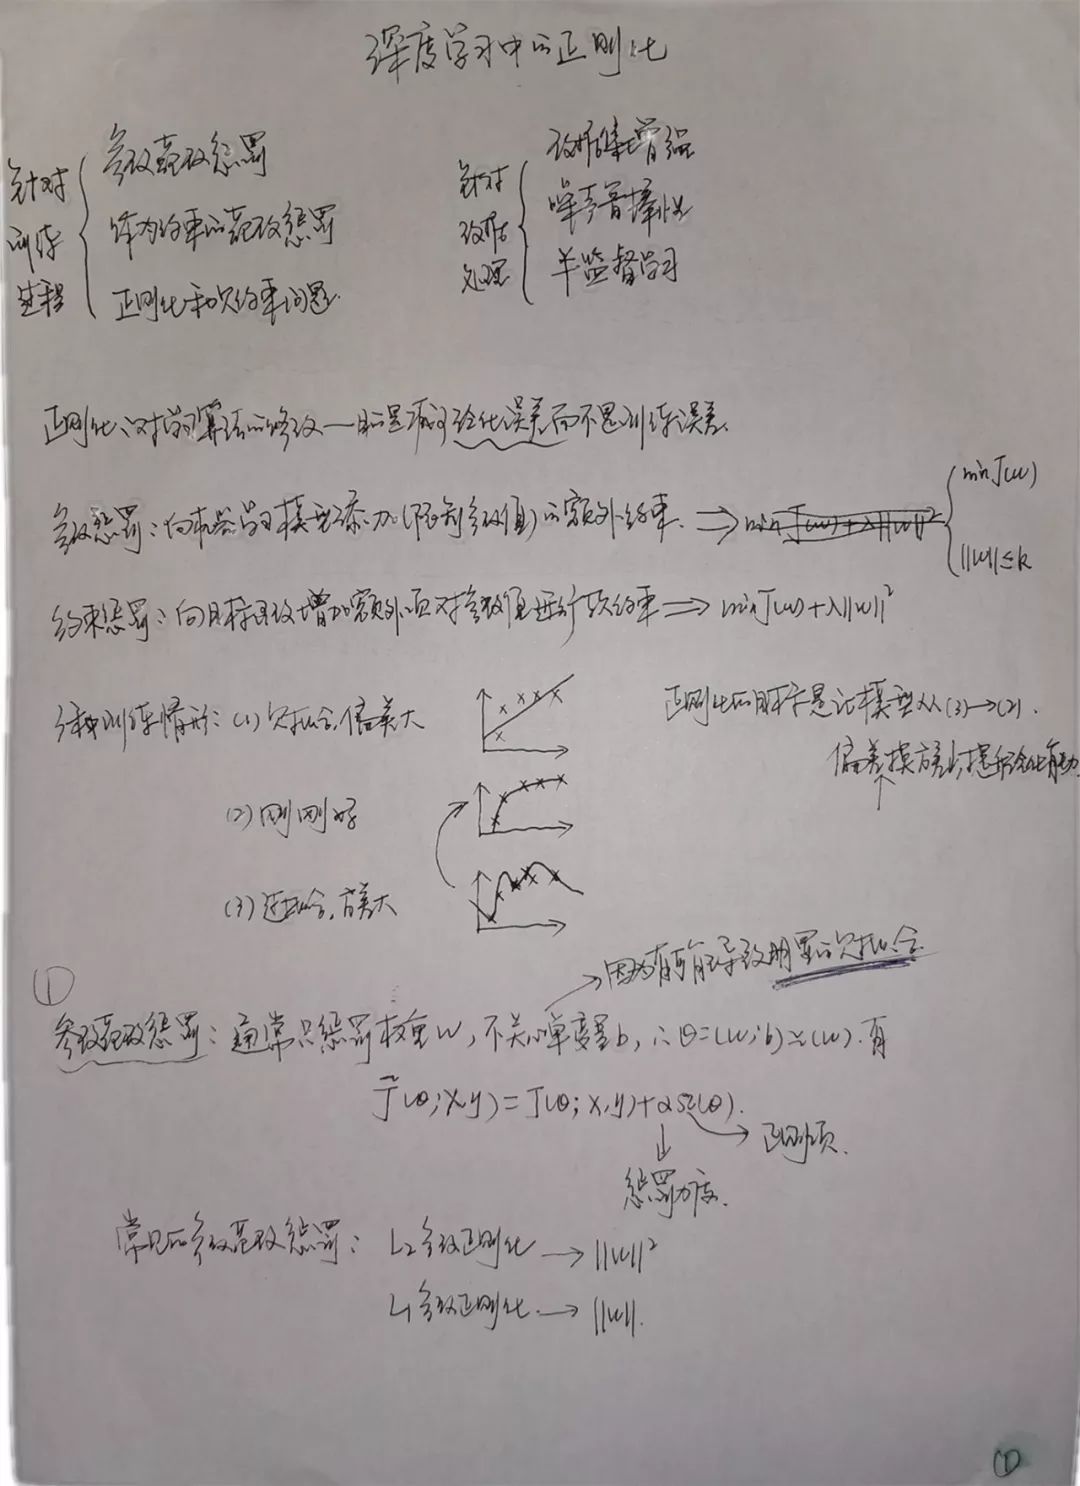 深度学习中的正则化
针对训练过程
参数范数惩罚
作为约束的范数惩罚
正则化和欠约束问题.
针对数据处理
数据集增强
噪声鲁棒性
半监督学习
正则化:对学习算法的修改—旨在减少泛化误差而不是训练误差.
参数惩罚:向机器学习模型添加(限制参数值)的额外约束. ⇒ min J(w)+λ||w||²
min J(w)
||w||≤k
约束惩罚:向目标函数增加额外项对参数值进行软约束 ⇒ min J(w)+λ||w||²
训练情形: (1) 欠拟合,偏差大
(2) 刚刚好
(3) 过拟合,方差大
正则化的目标于是让模型从(3)→(2).
偏差换方差,提升泛化能力
①
→因为有可能导致明显的欠拟合.
参数范数惩罚:通常只惩罚权重w,不关心单变量b,∴θ=(w;b)≃(w).有
J̃(θ;X,y)=J(θ;X,y)+αΩ(θ).
→正则项.
惩罚力度.
常见的参数范数惩罚: L₂参数正则化 → ||w||²
L₁参数正则化. → ||w||.
①